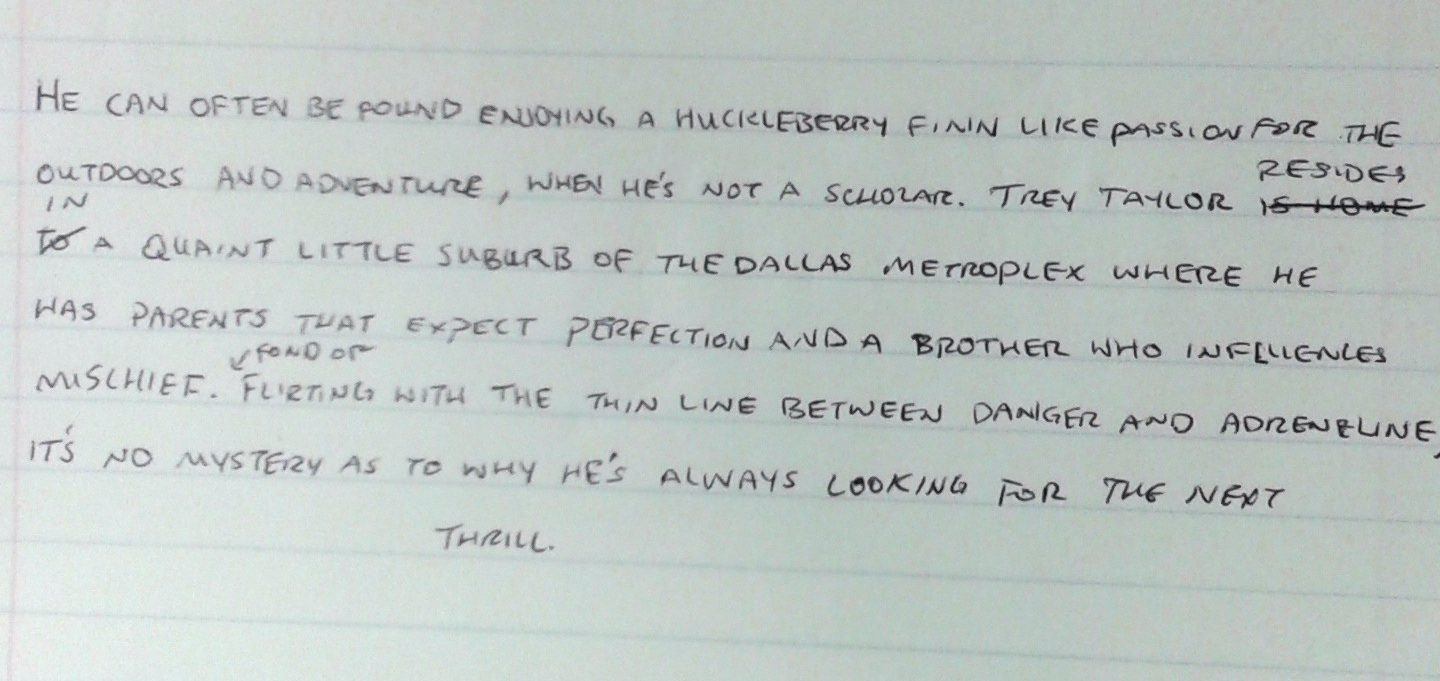 HE CAN OFTEN BE FOUND ENJOYING A HUCKLEBERRY FININ LIKE PASSION FOR THE
RESIDES
OUTDOORS AND ADVENTURE, WHEN HE'S NOT A SCHOLAR. TREY TAYLOR IS HOME
IN
TO A QUAINT LITTLE SUBURB OF THE DALLAS METROPLEX WHERE HE
HAS PARENTS THAT EXPECT PERFECTION AND A BROTHER WHO INFLUENCES
FOND OF
MISCHIEF. FLIRTING WITH THE THIN LINE BETWEEN DANGER AND ADRENELINE,
IT'S NO MYSTERY AS TO WHY HE'S ALWAYS LOOKING FOR THE NEXT
THRILL.